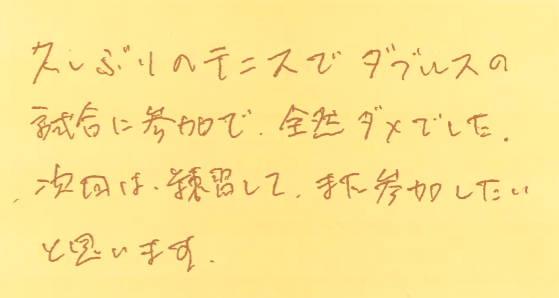 久しぶりのテニスでダブルスの
試合に参加で、全然ダメでした。
次回は、練習して、また参加したい
と思います。